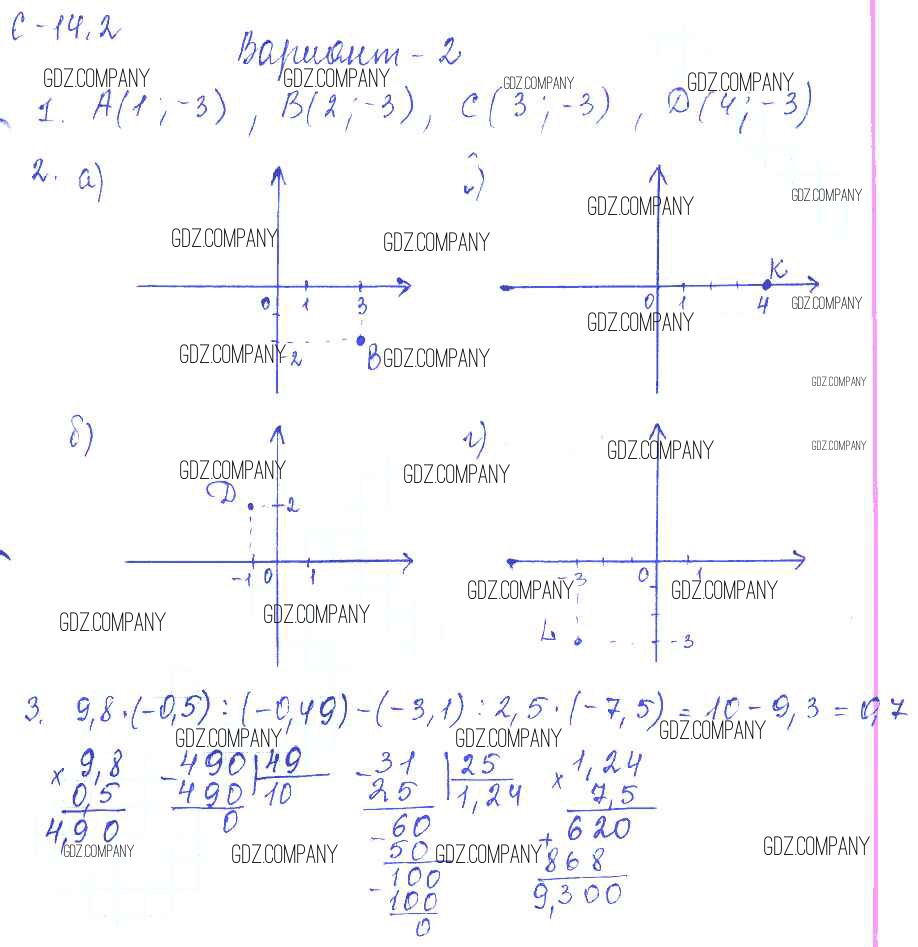 С - 14,2
Вариант - 2
GDZ.COMPANY GDZ.COMPANY GDZ.COMPANY GDZ.COMPANY
1. A(1; -3) , B(2; -3), C(3; -3) , D(4; -3)
2. а)
GDZ.COMPANY GDZ.COMPANY
GDZ.COMPANY GDZ.COMPANY
K
0 1 3
0 1 4
GDZ.COMPANY
GDZ.COMPANY
GDZ.COMPANY -2 B GDZ.COMPANY
GDZ.COMPANY
б) г)
GDZ.COMPANY GDZ.COMPANY
GDZ.COMPANY GDZ.COMPANY
D 2
-1 0 1
-3 0 1
GDZ.COMPANY GDZ.COMPANY
GDZ.COMPANY GDZ.COMPANY
L -3
3. 9,8 · (-0,5) : (-0,49) - (-3,1) : 2,5 · (-7,5) = 10 - 9,3 = 0,7
GDZ.COMPANY GDZ.COMPANY GDZ.COMPANY
× 9,8 - 490 | 49 - 31 | 25 × 1,24
0,5 490 10 25 1,24 7,5
4,90 0 - 60 + 620
GDZ.COMPANY GDZ.COMPANY 50 GDZ.COMPANY 868 GDZ.COMPANY
- 100 9,300
100
0